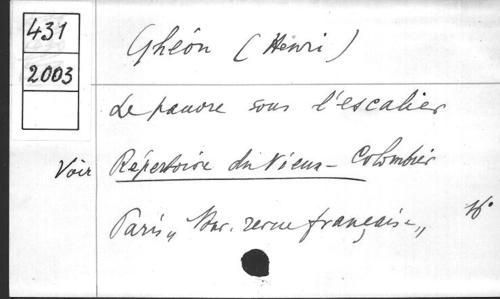 431
2003
Ghéon (Henri)
Le pauvre sous l'escalier
Voir Répertoire du Vieux-Colombier
Paris, revue française,